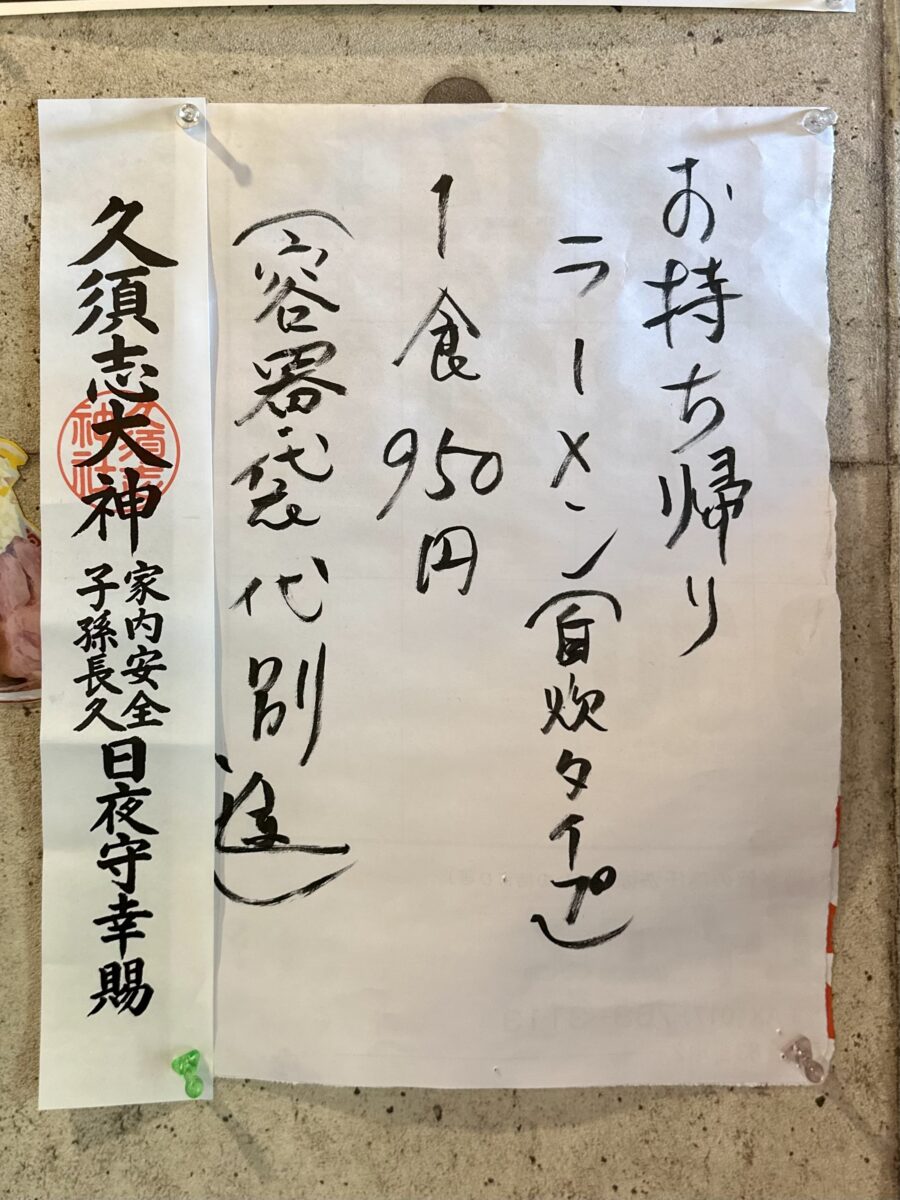 お持ち帰り
ラーメン(自炊タイプ)
1食950円
(容器・袋代別途)
久須志大神
家内安全
子孫長久
日夜守幸賜